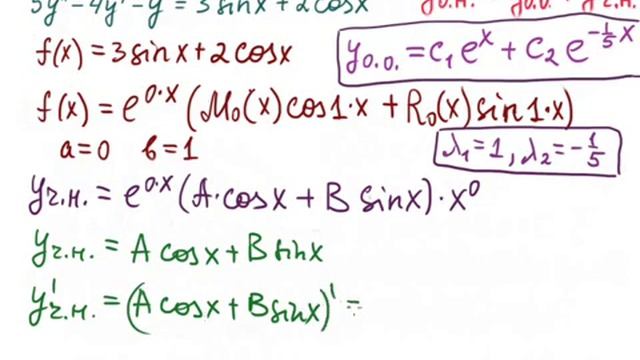 5y'' - 4y' - y = 3 sinx + 2 cosx
f(x) = 3 sinx + 2 cosx
y₀.₀. = C₁eˣ + C₂e^(-1/5 x)
f(x) = e^(0·x) (M₀(x) cos1·x + R₀(x) sin1·x)
a=0 b=1
λ₁=1, λ₂=-1/5
yч.н. = e^(0·x) (A·cosx + B sinx)·x⁰
yч.н. = A cosx + B sinx
y'ч.н. = (A cosx + B sinx)' =